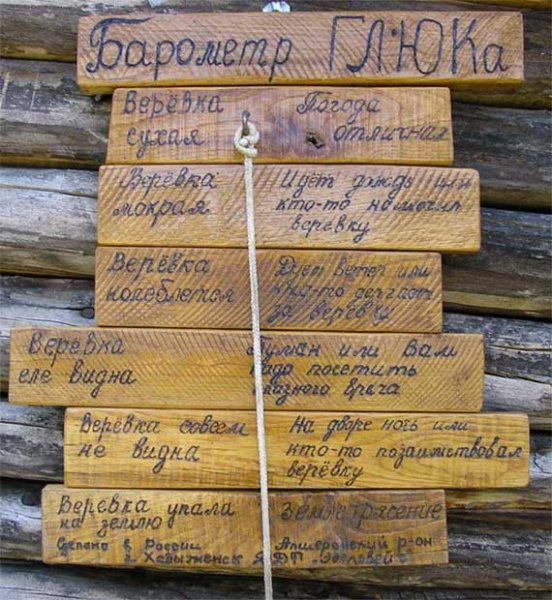 Барометр ГЛ'ЮКа
Верёвка
сухая
Погода
отличная
Верёвка
мокрая
Идёт дождь или
кто-то намочил
верёвку
Верёвка
колеблется
Дует ветер или
кто-то дергает
за верёвку
Верёвка
еле видна
Туман или Вам
надо посетить
глазного врача
Верёвка совсем
не видна
На дворе ночь или
кто-то позаимствовал
верёвку
Верёвка упала
на землю
Землетрясение
Сделано в России Апшеронский р-он
г. Хадыженск